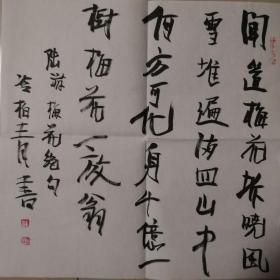 闻道梅花坼晓风
雪堆遍满四山中
何方可化身千億一
樹梅花一放翁
陆游梅花绝句